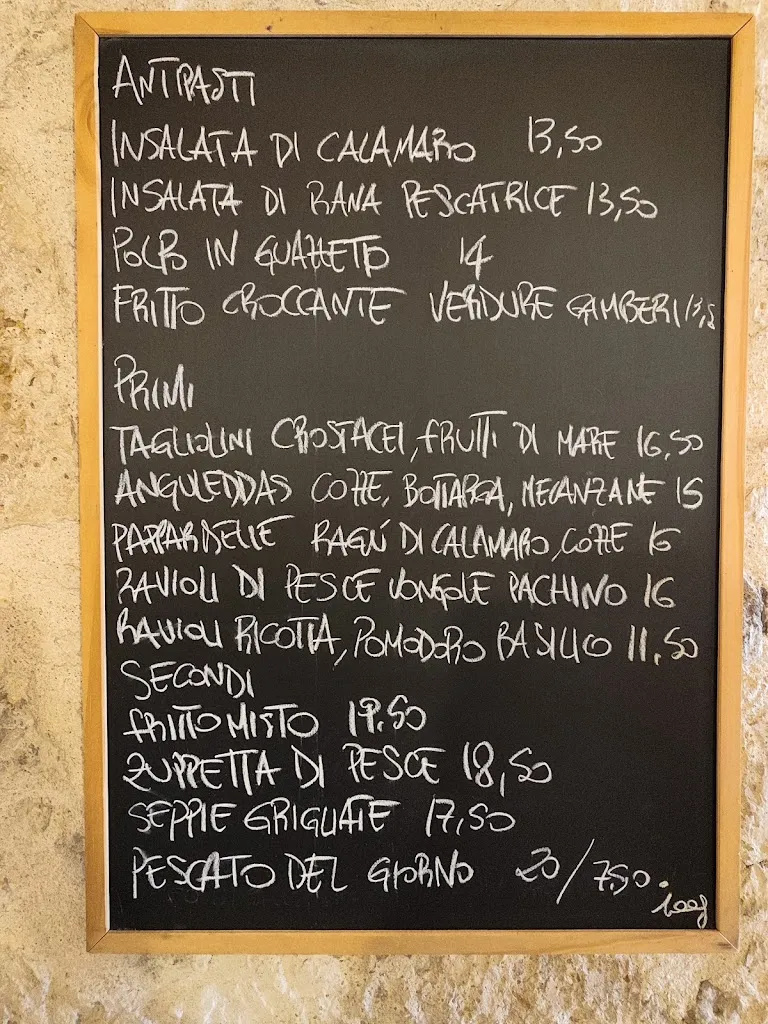 ANTIPASTI
INSALATA DI CALAMARO 13,50
INSALATA DI RANA PESCATRICE 13,50
POLPO IN GUAZZETTO 14
FRITTO CROCCANTE VERDURE GAMBERI 13,5
PRIMI
TAGLIOLINI CROSTACEI, FRUTTI DI MARE 16,50
ANGULEDDAS COZZE, BOTTARGA, MELANZANE 15
PAPPARDELLE RAGÚ DI CALAMARO, COZZE 15
RAVIOLI DI PESCE VONGOLE PACHINO 16
RAVIOLI RICOTTA, POMODORO BASILICO 11,50
SECONDI
FRITTO MISTO 19,50
ZUPPETTA DI PESCE 18,50
SEPPIE GRIGLIATE 17,50
PESCATO DEL GIORNO 20/7,50.
100g